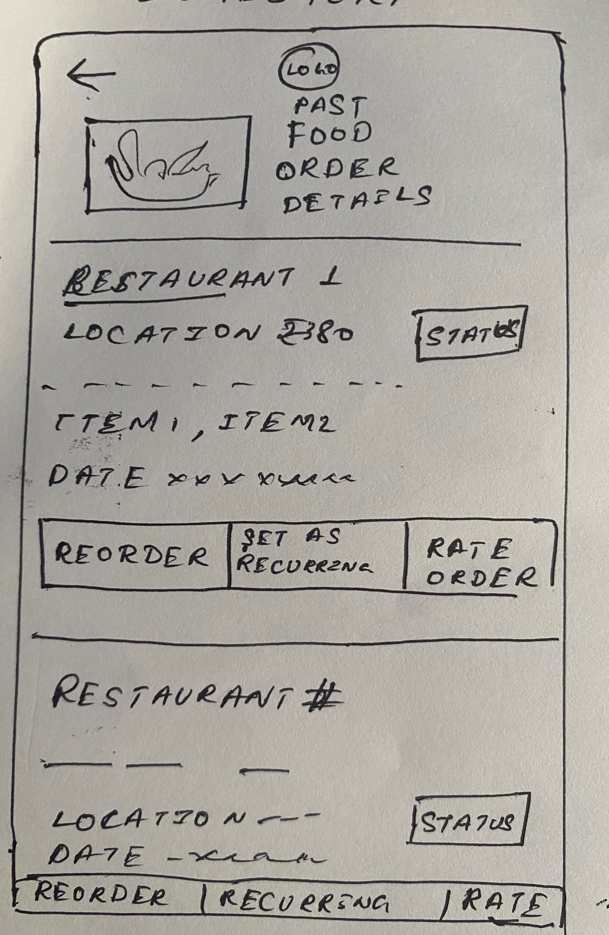 LOGO
PAST
FOOD
ORDER
DETAILS
RESTAURANT 1
LOCATION 2380
STATUS
ITEM1, ITEM2
DATE xxx
REORDER
SET AS
RECURRING
RATE
ORDER
RESTAURANT #
LOCATION ---
STATUS
DATE
REORDER | RECURRING | RATE